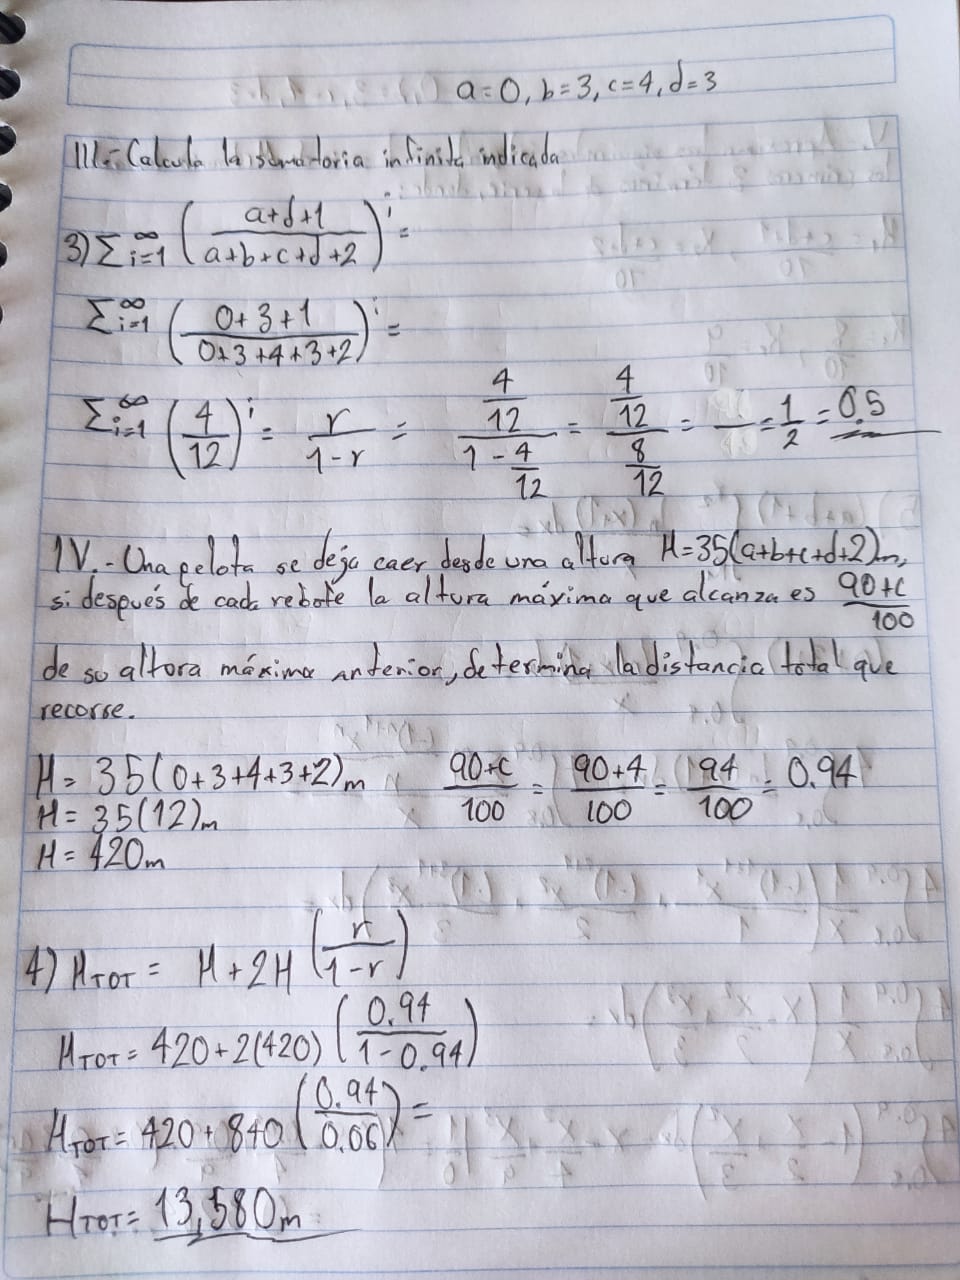 a=0, b=3, c=4, d=3
III.- Calcula la sumatoria infinita indicada
3) Σ_{i=1}^{∞} ((a+d+1)/(a+b+c+d+2))^i =
Σ_{i=1}^{∞} ((0+3+1)/(0+3+4+3+2))^i =
Σ_{i=1}^{∞} (4/12)^i = r/(1-r) = (4/12)/(1-4/12) = (4/12)/(8/12) = = 1/2 = 0.5
IV.- Una pelota se deja caer desde una altura H=35(a+b+c+d+2)m,
si después de cada rebote la altura máxima que alcanza es (90+c)/100
de su altura máxima anterior, determina la distancia total que
recorse.
H = 35(0+3+4+3+2)m (90+c)/100 = (90+4)/100 = 94/100 = 0.94
H = 35(12)m
H = 420m
4) H_TOT = H+2H (r/(1-r))
H_TOT = 420+2(420) (0.94/(1-0.94))
H_TOT = 420+840 (0.94/0.06) =
H_TOT = 13,580m